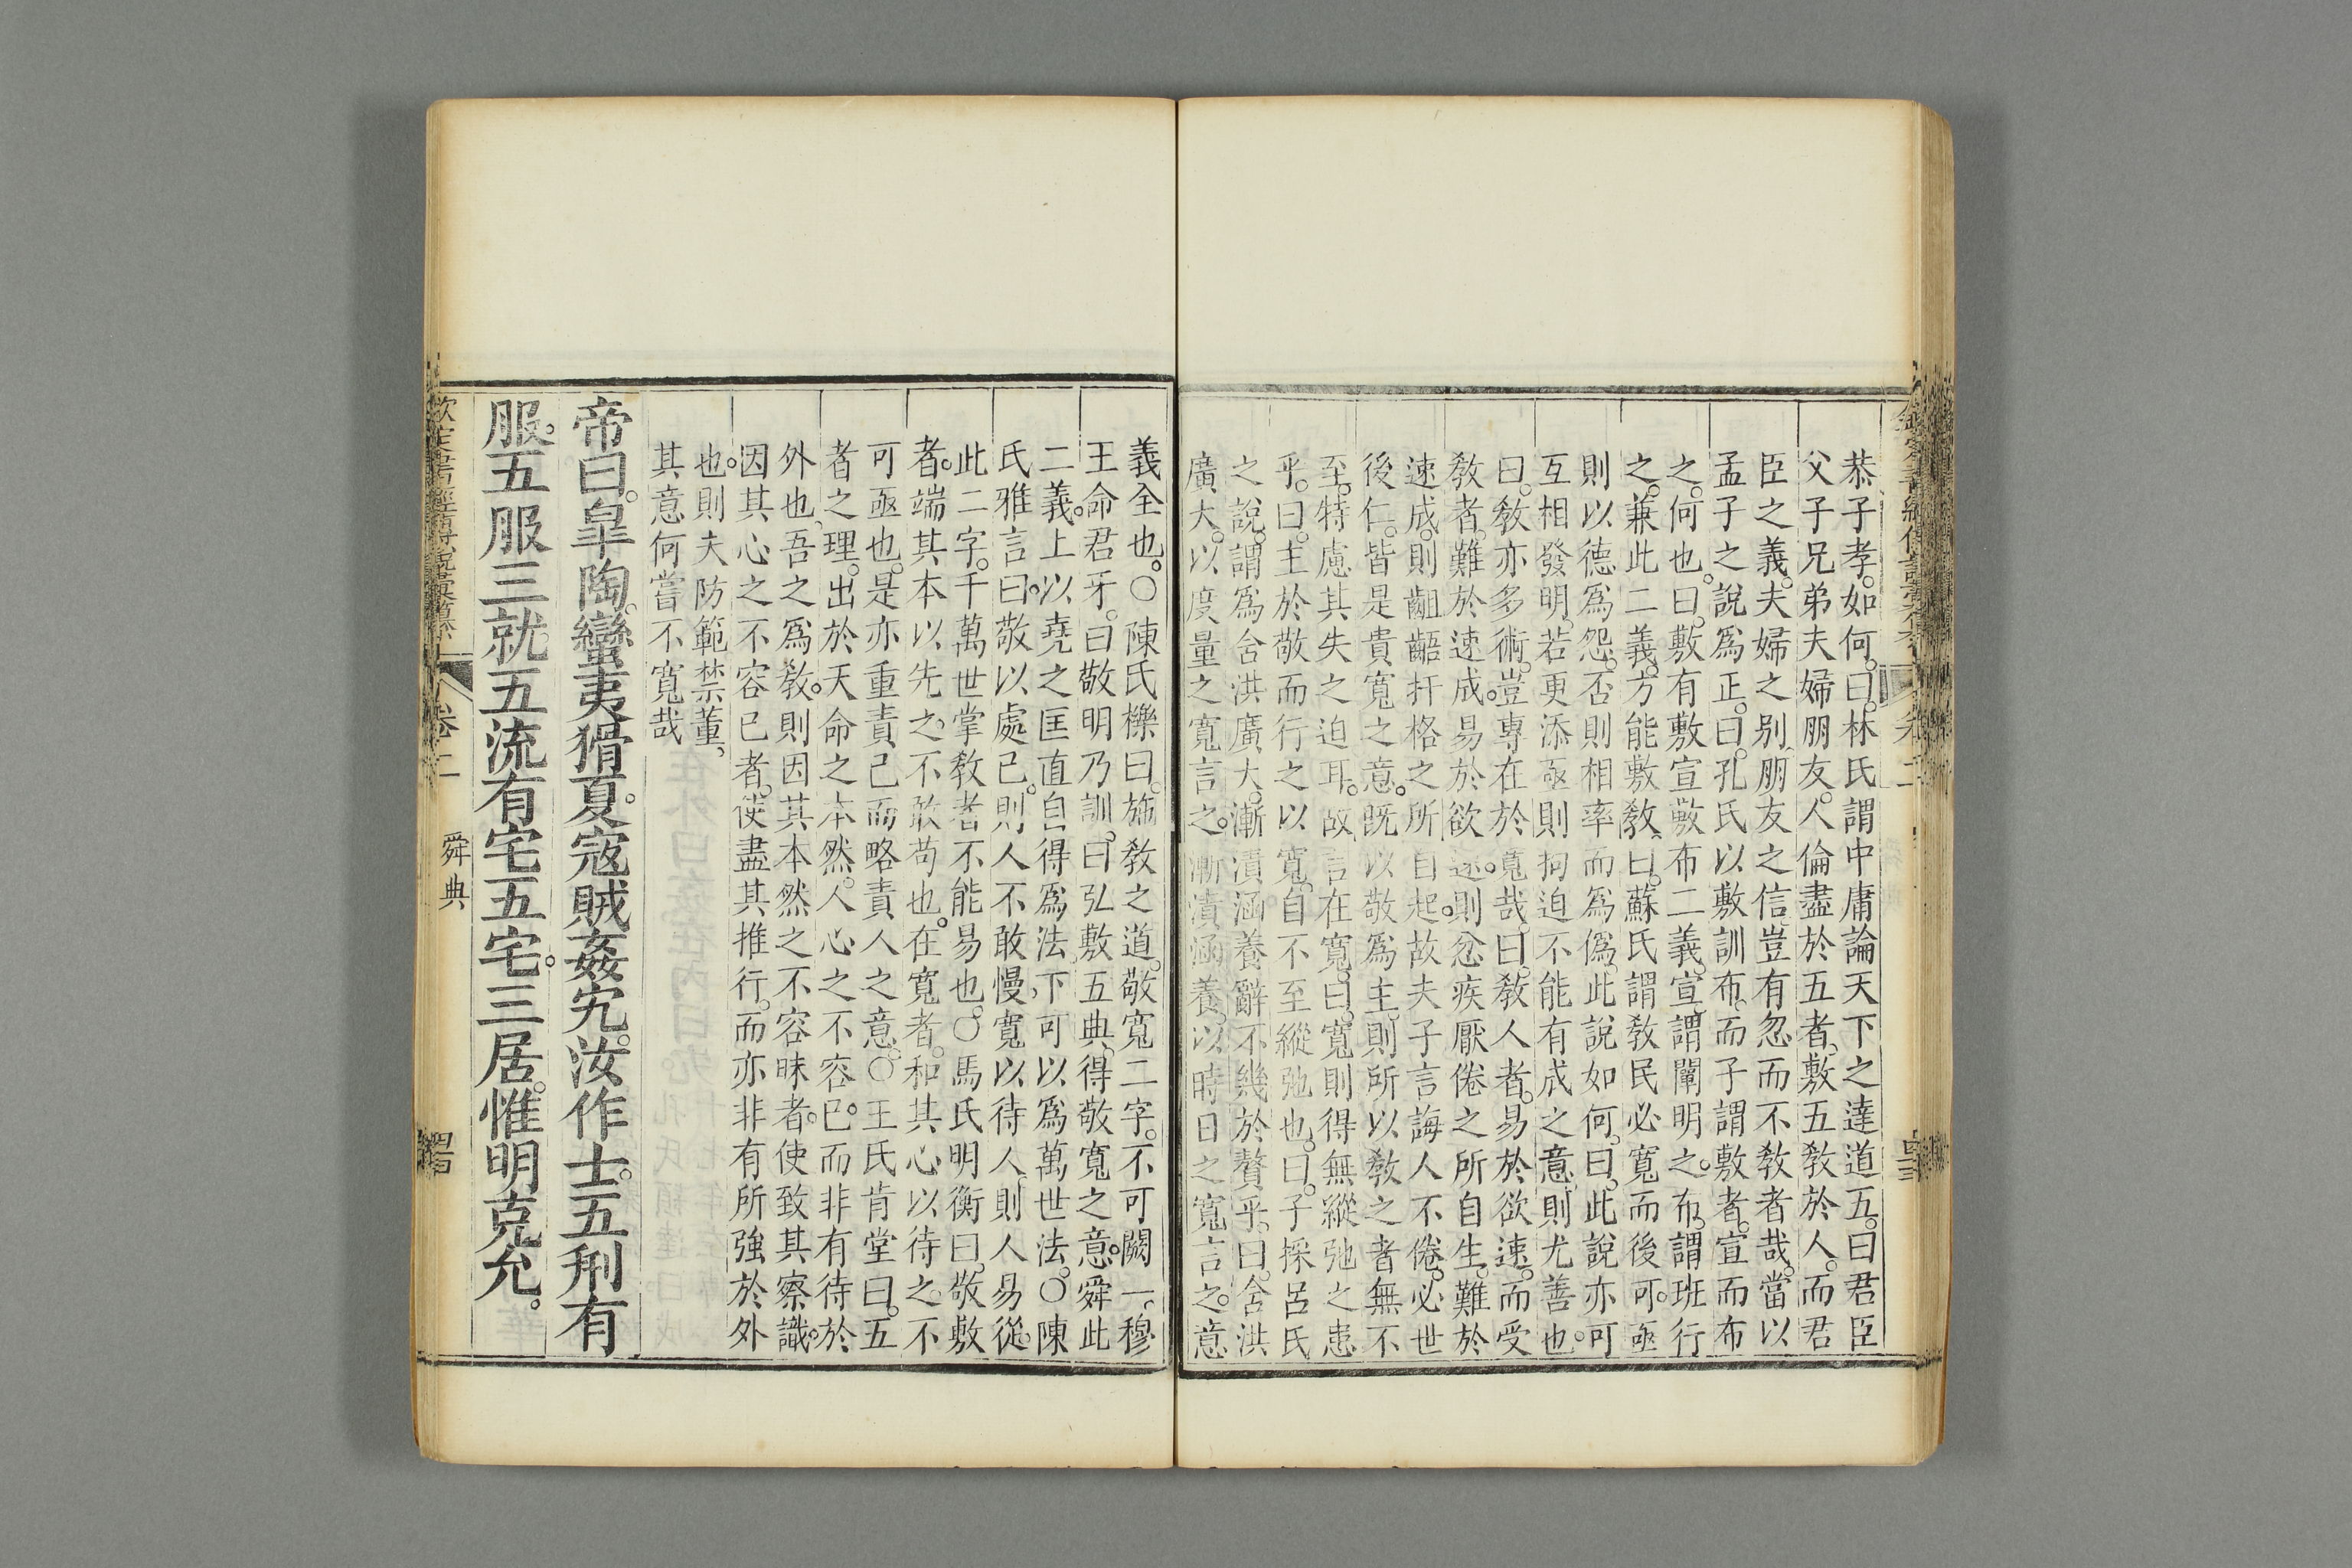 恭子孝。如何。曰。林氏謂中庸論天下之達道五。曰君臣
父子兄弟夫婦朋友。人倫盡於五者。敷五敎於人。而君
臣之義。夫婦之别。朋友之信。豈有忽而不敎者哉。當以
孟子之說爲正。曰。孔氏以敷訓布。而子謂敷者。宣而布
之。何也。曰。敷有敷宣敷布二義。宣。謂闡明之。布。謂班行
之。兼此二義。方能敷敎。曰。蘇氏謂敎民必寬而後可。亟
則以德爲怨。否則相率而爲僞。此說如何。曰。此說亦可
互相發明。若更添亟則拘迫不能有成之意。則尤善也。
曰。敎亦多術。豈專在於寬哉。曰。敎人者。易於欲速。而受
敎者。難於速成。易於欲速。則忿疾厭倦之所自生。難於
速成。則齟齬扞格之所自起。故夫子言誨人不倦。必世
後仁。皆是貴寬之意。旣以敬爲主。則所以敎之者無不
至。特慮其失之迫耳。故言在寬。曰。寬則得無縱弛之患
乎。曰。主於敬而行之以寬。自不至縱弛也。曰。子採呂氏
之說。謂爲含洪廣大。漸漬涵養。辭不幾於贅乎。曰。含洪
廣大。以度量之寬言之。漸漬涵養。以時日之寬言之。意
義全也。○陳氏櫟曰。施敎之道。敬寬二字。不可闕一。穆
王命君牙。曰敬明乃訓。曰弘敷五典。得敬寬之意。舜此
二義。上以堯之匡直自得爲法。下可以爲萬世法。○陳
氏雅言曰。敬以處已。則人不敢慢。寬以待人。則人易從。
此二字。千萬世掌敎者不能易也。○馬氏明衡曰。敬敷
者。端其本以先之。不敢苟也。在寬者。和其心以待之。不
可亟也。是亦重責己而略責人之意。○王氏肯堂曰。五
者之理。出於天命之本然。人心之不容已。而非有待於
外也。吾之爲敎。則因其本然之不容昧者。使致其察識。
因其心之不容已者。使盡其推行。而亦非有所強於外
也。則夫防範禁董。
其意何嘗不寬哉
帝曰。臯陶。蠻夷猾夏。寇賊姦宄。汝作士。五刑有
服。五服三就。五流有宅。五宅三居。惟明克允。
欽定書經傳說彙纂
卷二
舜典